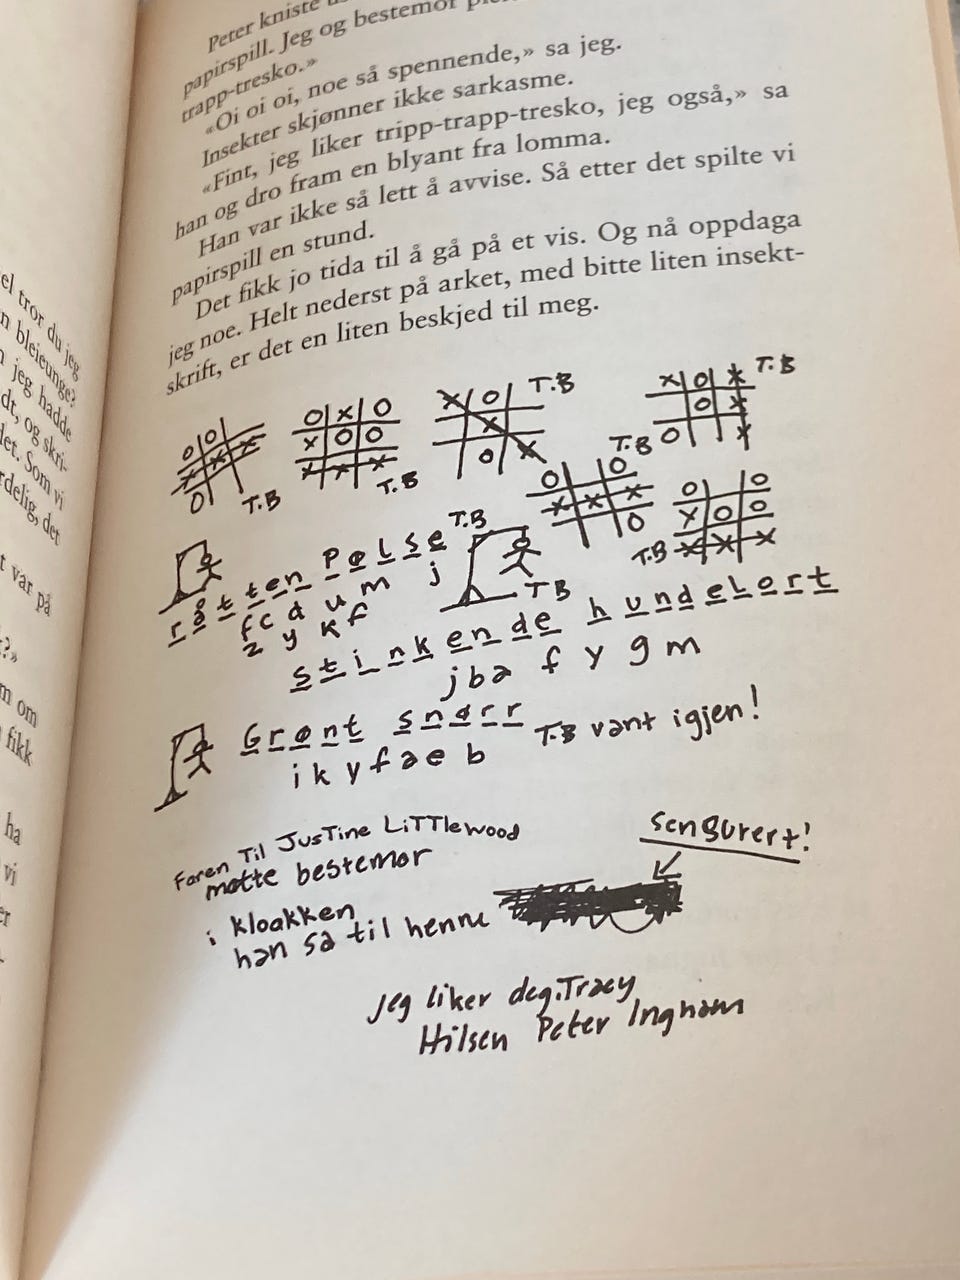 Peter kniste
papirspill. Jeg og bestemor
trapp-tresko.»
«Oi oi oi, noe så spennende,» sa jeg.
Insekter skjønner ikke sarkasme.
«Fint, jeg liker tripp-trapp-tresko, jeg også,» sa
han og dro fram en blyant fra lomma.
Han var ikke så lett å avvise. Så etter det spilte vi
papirspill en stund.
Det fikk jo tida til å gå på et vis. Og nå oppdaga
jeg noe. Helt nederst på arket, med bitte liten insekt-
skrift, er det en liten beskjed til meg.
T.B
T.B
T.B
T.B
T.B
T.B
råtten Pølse T.B
f c d u m j
z y k f
T B
stinkende hundelort
j b a f y g m
Grønt snørr
i k y f a e b
T.B vant igjen!
Faren Til JusTine LiTTlewood
møtte bestemor
i kloakken
han sa til henne
sensurert!
Jeg liker deg, Tracy
Hilsen Peter Ingham
el tror du jeg
n bleieunge?
n jeg hadde
dt, og skri-
det. Som vi
rdelig, det
t var på
m om
fikk
ha
vi